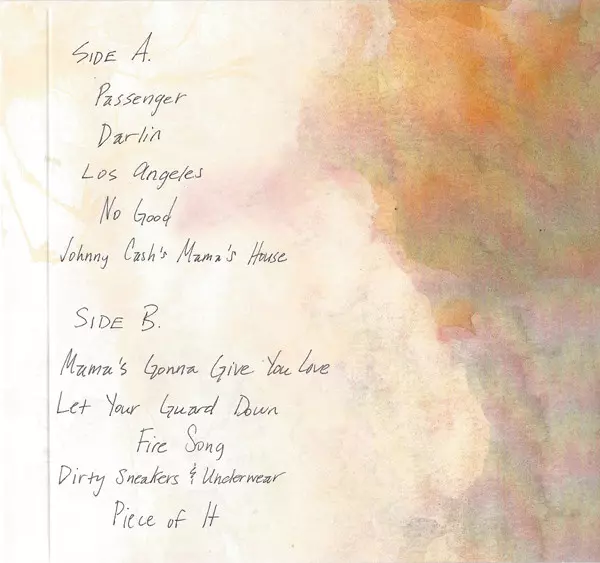 SIDE A.
Passenger
Darlin
Los Angeles
No Good
Johnny Cash's Mama's House
SIDE B.
Mama's Gonna Give You Love
Let Your Guard Down
Fire Song
Dirty Sneakers & Underwear
Piece of It